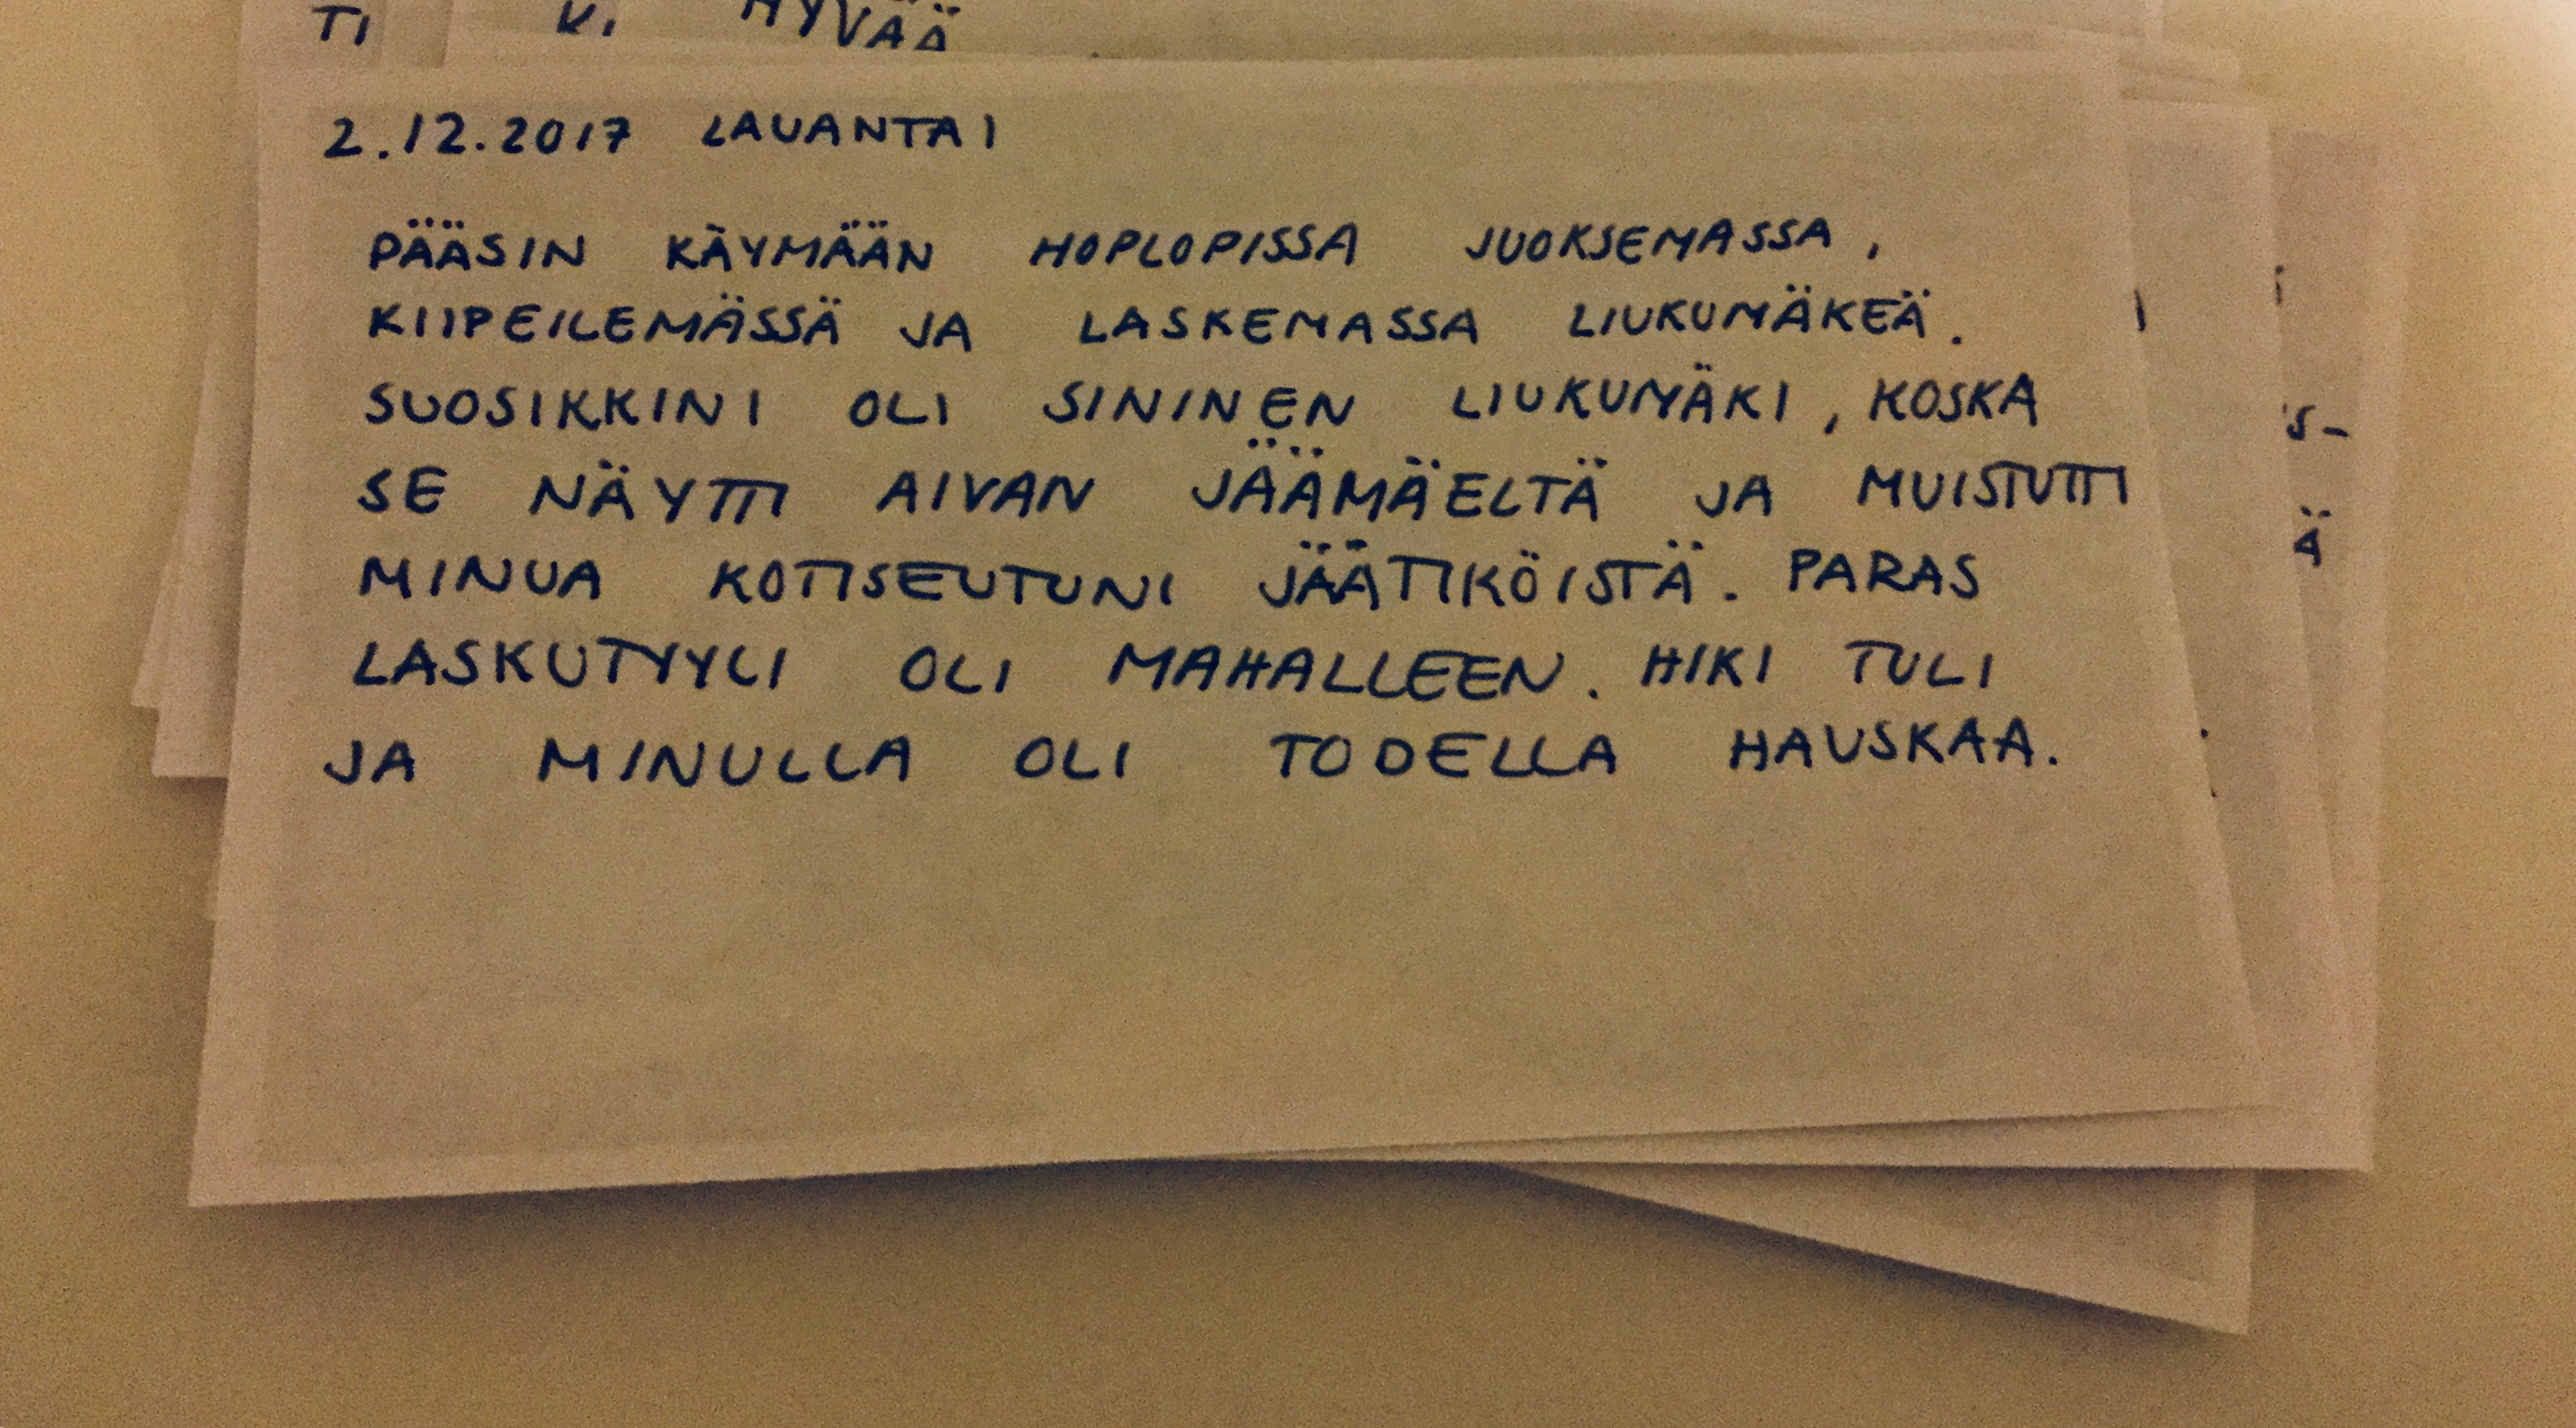 HYVÄÄ
2.12.2017 LAUANTAI
PÄÄSIN KÄYMÄÄN HOPLOPISSA JUOKSEMASSA,
KIIPEILEMÄSSÄ JA LASKEMASSA LIUKUMÄKEÄ.
SUOSIKKINI OLI SININEN LIUKUMÄKI, KOSKA
SE NÄYTTI AIVAN JÄÄMÄELTÄ JA MUISTUTTI
MINUA KOTISEUTUNI JÄÄTIKÖISTÄ. PARAS
LASKUTYYLI OLI MAHALLEEN. HIKI TULI
JA MINULLA OLI TODELLA HAUSKAA.